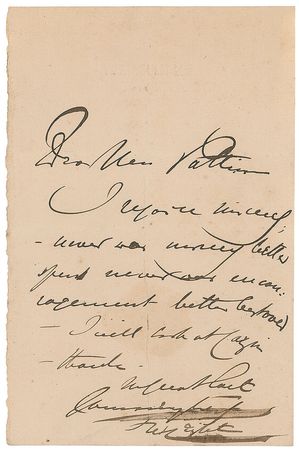 Dear Mrs Pattison
I rejoice sincerely,
- never was money better
spent never was encou:
ragement better bestowed
- I will look at
thanks
In great haste